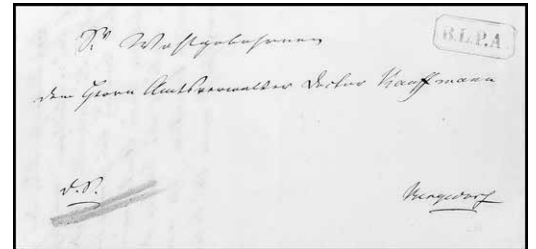 B.L.P.A
Sr Wohlgebohren
dem Herrn Amtsverwalter Doctor Kauffmann
d. S.
Bergedorf